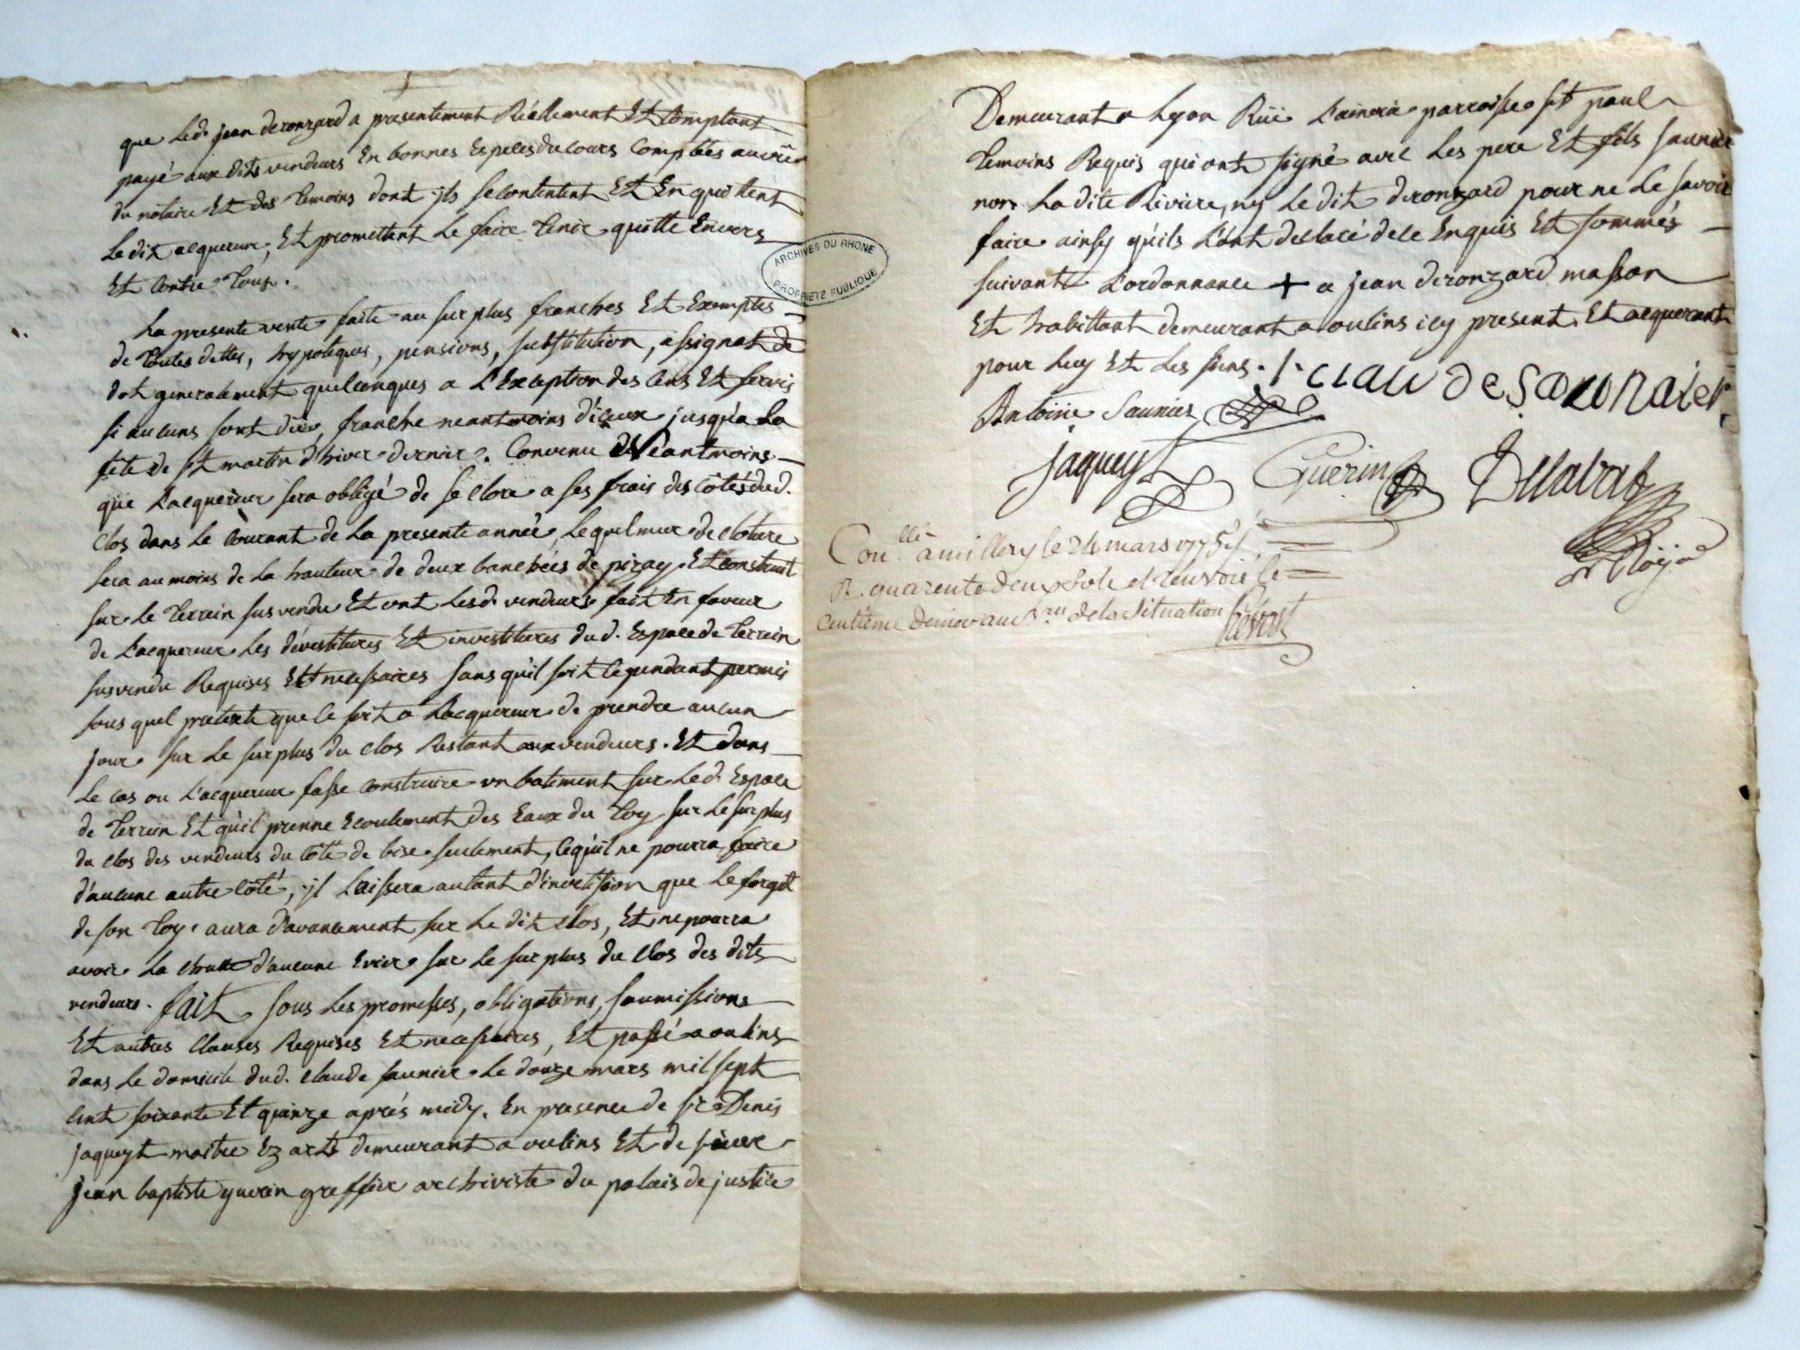 que led. jean deronzard a présentement Réellement Et Comptant
payé aux dits vendeurs En bonnes Especes du cours Comptées au vû
du notaire Et des Temoins dont jls se contentent Et En quittent
Le dit acquereur, Et promettent Le faire Tenir quitte Envers
Et Contre Tous.
La presente vente faite au surplus franches Et Exemptes
de Toutes dettes, hypoteques, pensions, substitution, assignat de
dot generalement quelconques a L'Exception des Cens Et servis
si aucuns sont dus, franche neantmoins d'iceux jusqu'a La
fête de St martin d'hiver dernier. Convenu Neantmoins
que L'acquereur sera obligé de se Clore a ses frais des côtés dud.
Clos dans Le Courant de La presente année, Lequel mur de cloture
sera au moins de La hauteur de deux banchées de pizay Et construit
sur Le Terrein susvendu Et ont Lesd. vendeurs fait En faveur
de L'acquereur Les dévestitures Et investitures dud. Espace de Terrein
susvendu Requises Et necessaires sans qu'il soit Cependant permis
sous quel pretext que ce soit a L'acquereur de prendre aucun
jour sur Le surplus du Clos Restant aux vendeurs. Et dans
Le cas ou L'acquereur fasse construire un batiment sur Led. Espace
de Terrein Et qu'il prenne Ecoulement des Eaux du Toy sur Le surplus
du clos des vendeurs du côté de bise seulement, ce qu'il ne pourra faire
d'aucune autre côté, jl Laissera autant d' que Le forget
de son Toy aura d'avancement sur Le dit Clos, Et ne pourra
avoir La chute d'aucune Evier sur Le surplus du Clos des dits
vendeurs. fait sous Les promesses, obligations, soumissions
Et autres Clauses Requises Et necessaires, Et passé a oulins
dans Le domicile dud. Claude saunier Le douze mars mil sept
cent soixante Et quinze aprés midy. En presence de sr. Denis
jaqueyt maitre Ez arts demeurant a oulins Et de sieur
jean baptiste guerin greffier archiviste du palais de justice
ARCHIVES DU RHONE
PROPRIETE PUBLIQUE
Demeurant a Lyon Rüe Lainerie parroisse St paul
Temoins Requis qui ont signé avec Les pere Et fils saunier
non La dite Riviere, ny Le dit deronzard pour ne Le savoir
faire ainsy qu'ils L'ont declaré de ce Enquis Et sommés
suivant L'ordonnance + a jean deronzard masson
Et habittant demeurant a oulins icy present Et acquerant
pour Luy Et Les siens.
Antoine Saunier
jaqueyt Guerin Dellabrat
Con.llé a millery le 24 mars 1775
R. quarente deux sols et renvoié le
centieme denier au Bru. de la situation Prévost